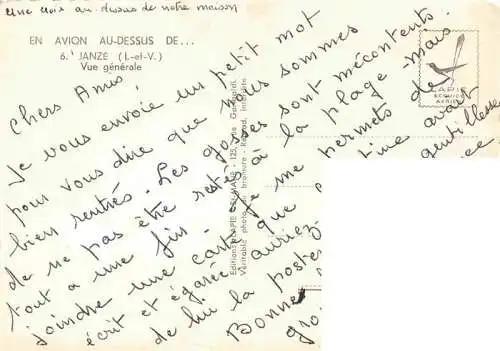 Une croix au-dessus de notre maison
EN AVION AU-DESSUS DE...
6. JANZE (I.-et-V.)
Vue générale
Chers Amis
Je vous envoie un petit mot
pour vous dire que nous sommes
bien rentrés. Les gosses sont mécontents
de ne pas être restés à la plage mais
tout a une fin. Je me permets de
joindre une carte que avait
écrit et égarée auriez gentillesse
de lui la poster
Bonne
Editions LAPIE
Véritable photo au bromure - Reprod. interdite
LAPIE